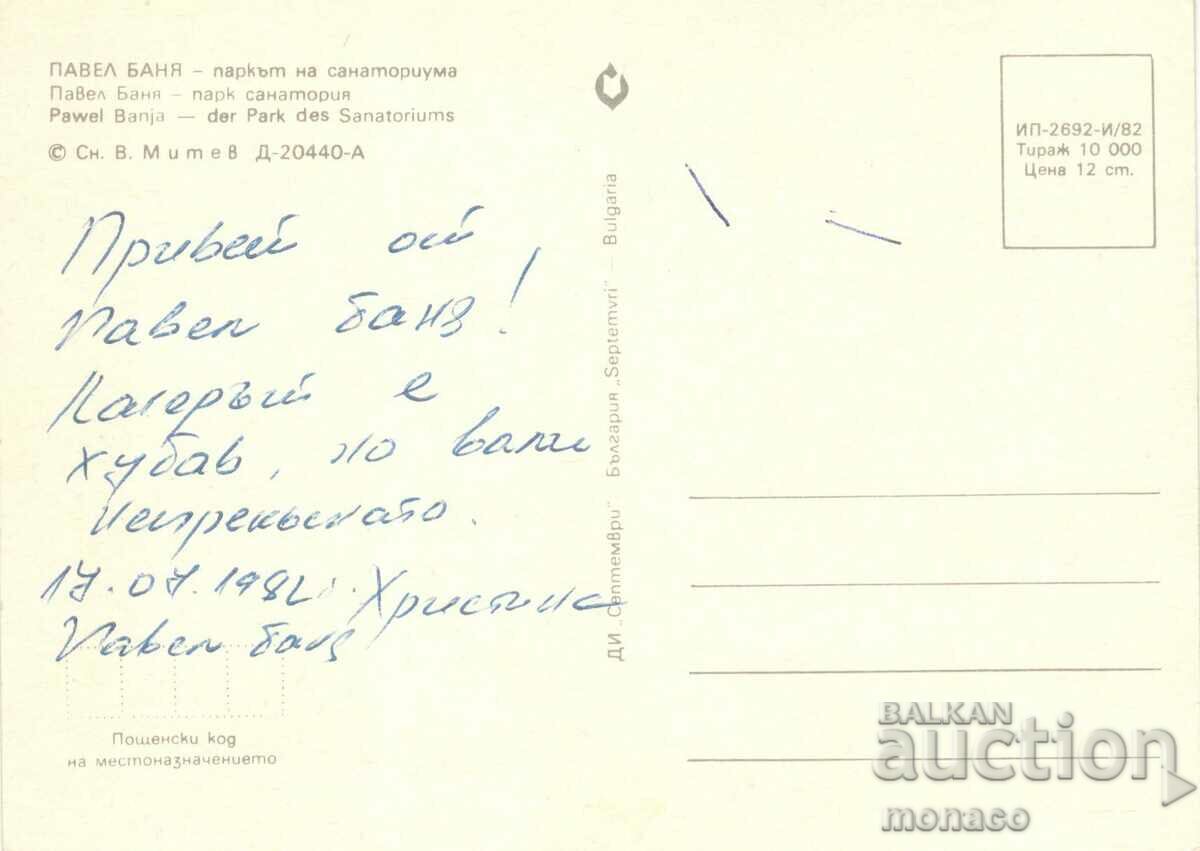 ПАВЕЛ БАНЯ – паркът на санаториума
Павел Баня – парк санатория
Pawel Banja — der Park des Sanatoriums
© Сн. В. Митев Д-20440-А
Привет от
Павел баня!
Лагерът е
хубав, но вали
непрекъснато.
17.07.1982 г. Христина
Павел баня
Пощенски код
на местоназначението
ДИ „Септември" България „Septemvri" — Bulgaria
ИП-2692-И/82
Тираж 10 000
Цена 12 ст.
BALKAN
auction
monaco